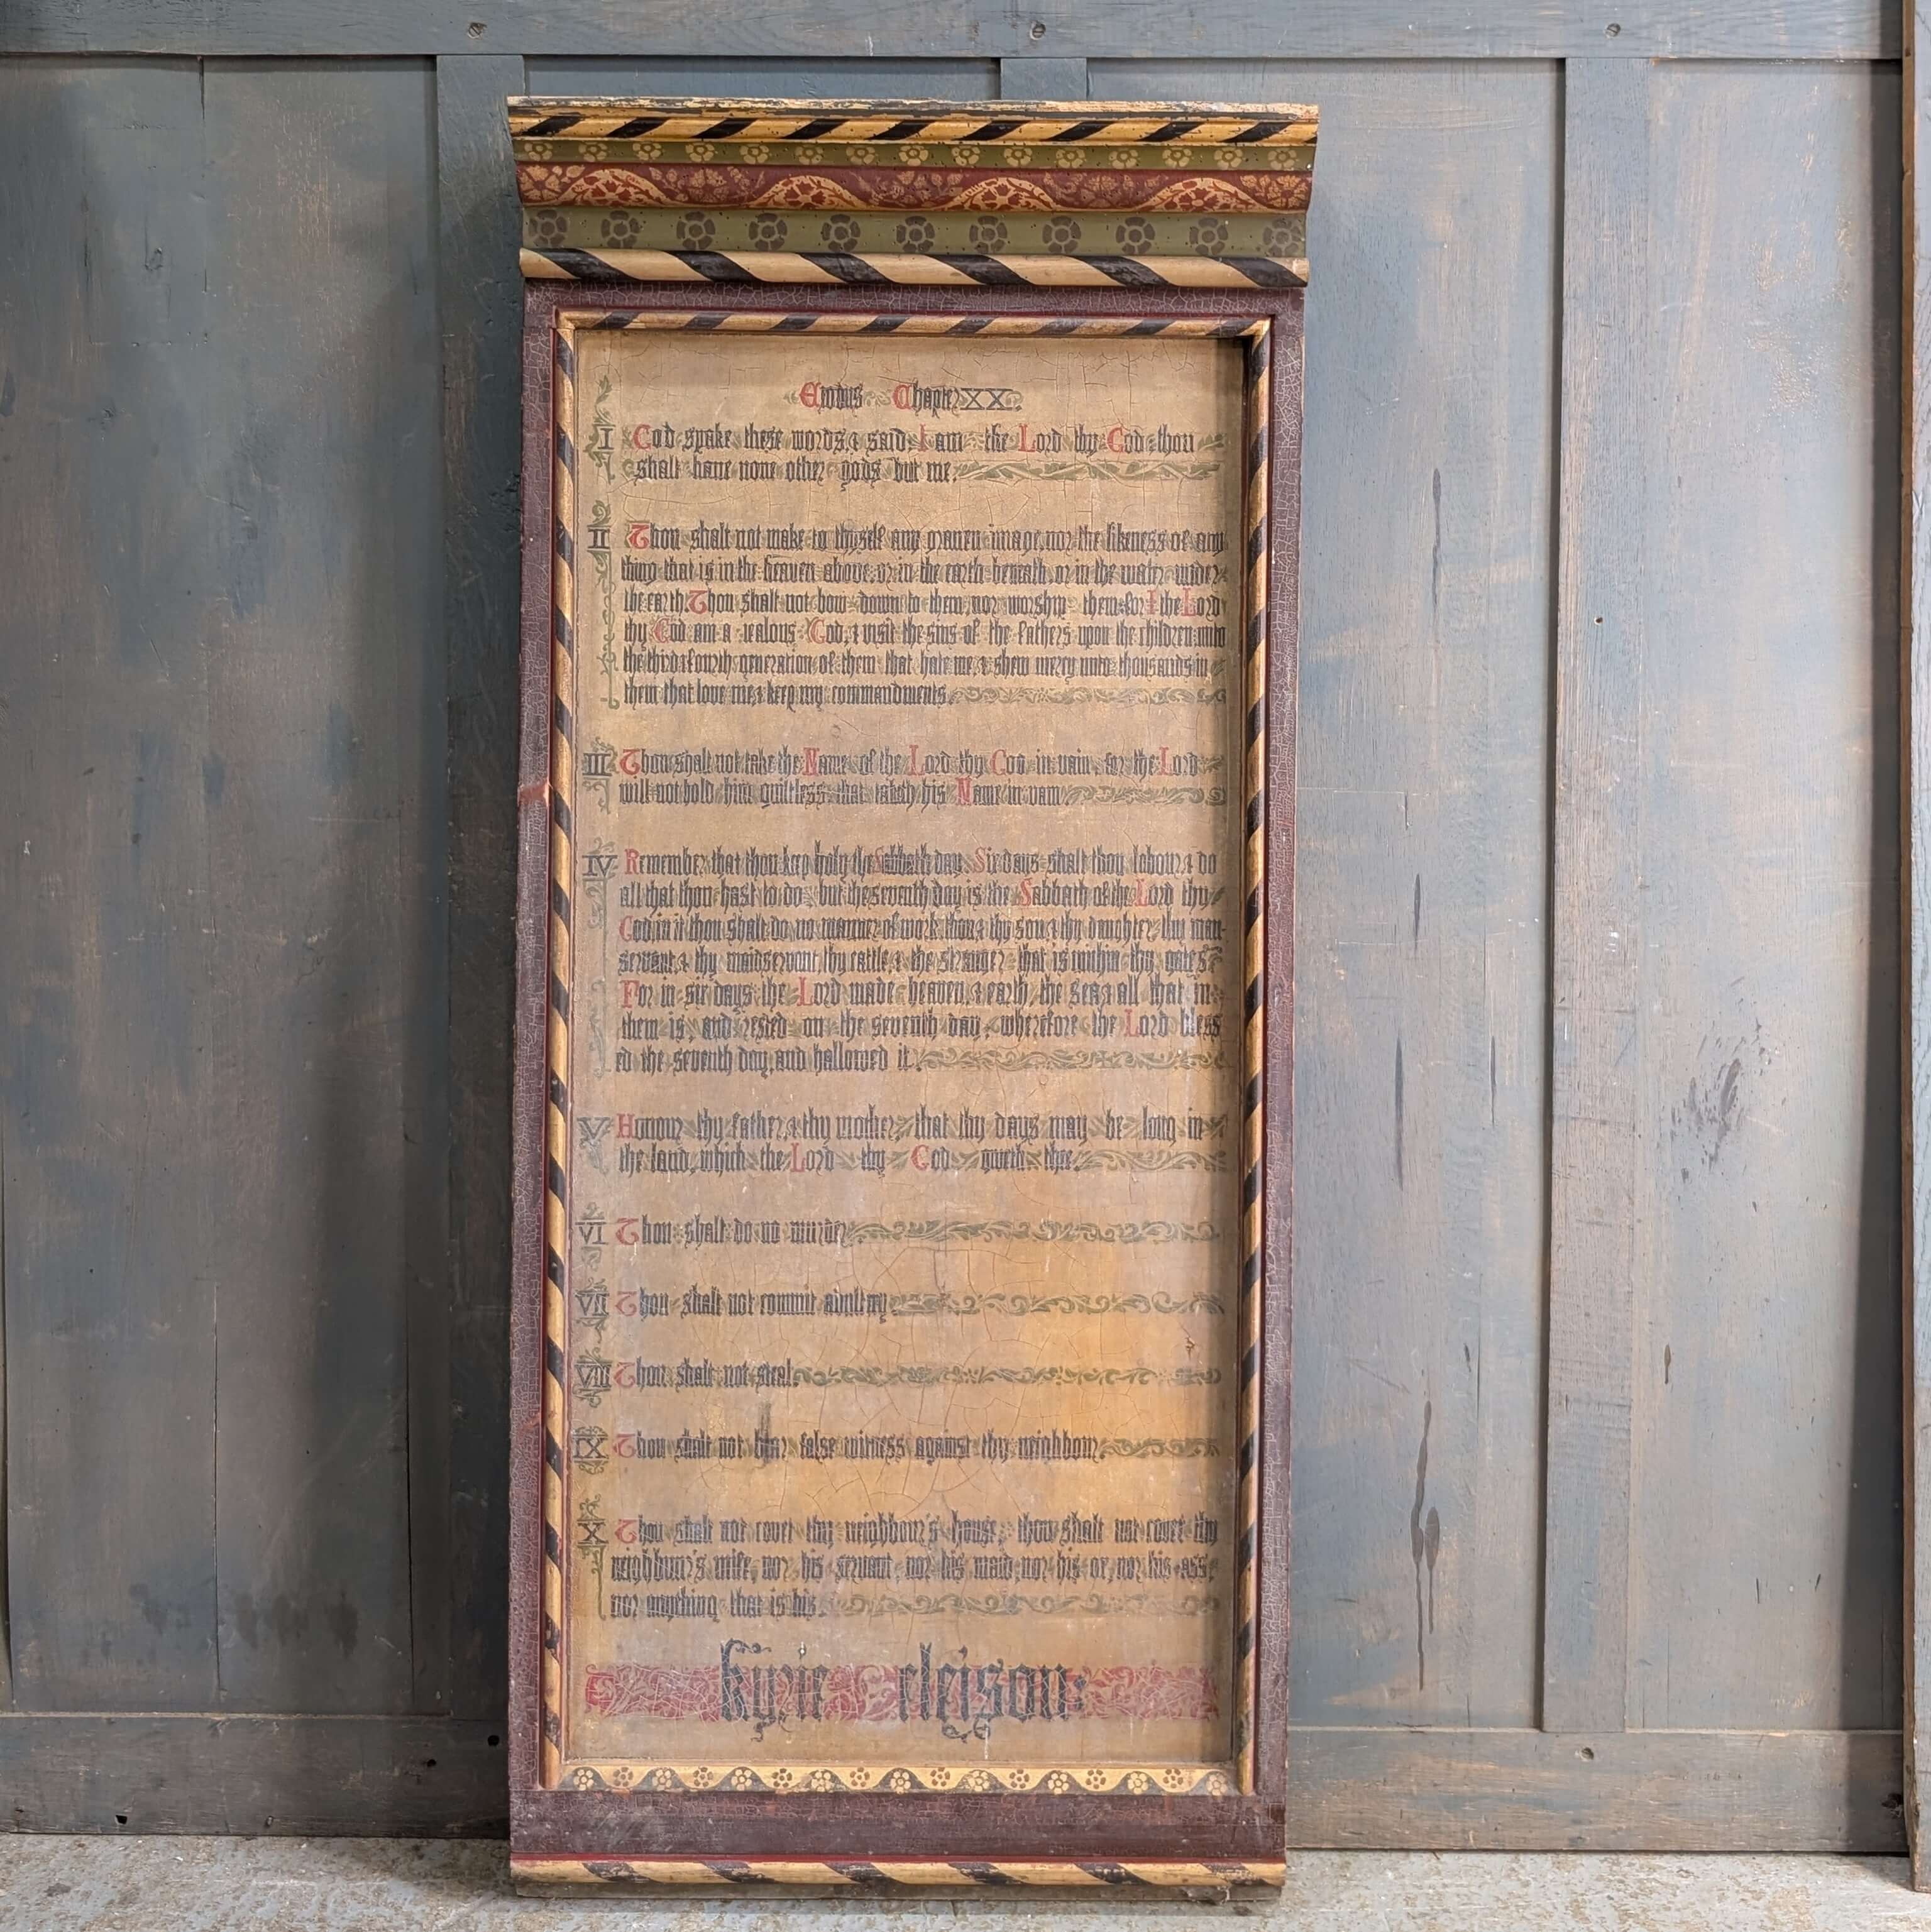 Exodus Chapter XX.
I God spake these words & said I am the Lord thy God thou
shalt have none other gods but me.
II Thou shalt not make to thyself any graven image, nor the likeness of any
thing that is in the heaven above, or in the earth beneath, or in the water under
the earth. Thou shalt not bow down to them, nor worship them: for I the Lord
thy God am a jealous God, & visit the sins of the fathers upon the children unto
the third & fourth generation of them that hate me, & shew mercy unto thousands in
them that love me & keep my commandments.
III Thou shalt not take the Name of the Lord thy God in vain, for the Lord
will not hold him guiltless that taketh his Name in vain
IV Remember that thou keep holy the Sabbath day. Six days shalt thou labour & do
all that thou hast to do, but the seventh day is the Sabbath of the Lord thy
God, in it thou shalt do no manner of work, thou & thy son & thy daughter, thy man-
servant, & thy maidservant, thy cattle, & the stranger that is within thy gates
For in six days the Lord made heaven, & earth, the sea & all that in
them is, and rested on the seventh day, wherefore the Lord bless
ed the seventh day, and hallowed it.
V Honour thy father, & thy mother, that thy days may be long in
the land, which the Lord thy God giveth thee.
VI Thou shalt do no murder
VII Thou shalt not commit adultery
VIII Thou shalt not steal.
IX Thou shalt not bear false witness against thy neighbour.
X Thou shalt not covet thy neighbour's house, thou shalt not covet thy
neighbour's wife, nor his servant, nor his maid, nor his ox, nor his ass,
nor anything that is his.
kyrie eleison: